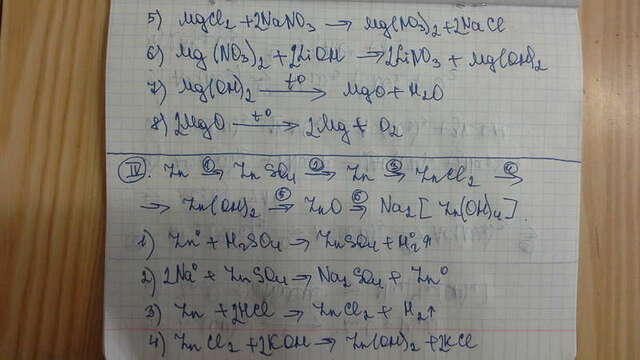 5) MgCl₂ + 2NaNO₃ → Mg(NO₃)₂ + 2NaCl
6) Mg(NO₃)₂ + 2LiOH → 2LiNO₃ + Mg(OH)₂
7) Mg(OH)₂ —t°→ MgO + H₂O
8) 2MgO —t°→ 2Mg + O₂
IV. Zn —①→ ZnSO₄ —②→ Zn —③→ ZnCl₂ —④→
→ Zn(OH)₂ —⑤→ ZnO —⑥→ Na₂[Zn(OH)₄].
1) Zn⁰ + H₂SO₄ → ZnSO₄ + H₂⁰↑
2) 2Na⁰ + ZnSO₄ → Na₂SO₄ + Zn⁰
3) Zn + 2HCl → ZnCl₂ + H₂↑
4) ZnCl₂ + 2KOH → Zn(OH)₂ + 2KCl